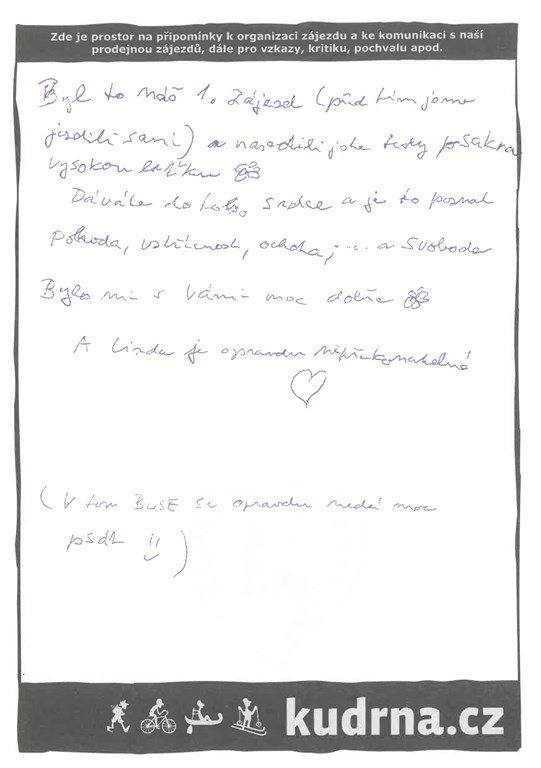 Zde je prostor na připomínky k organizaci zájezdu a ke komunikaci s naší
prodejnou zájezdů, dále pro vzkazy, kritiku, pochvalu apod.
Byl to náš 1. zájezd (před tím jsme
jezdili sami) a nasadili jste tedy posakra
vysokou laťku
Dáváte do toho srdce a je to poznat
Pohoda, vstřícnost, ochota, ... a svoboda
Bylo mi s Vámi moc dobře
A Linda je opravdu nepřekonatelná
(V tom BUSE se opravdu nedá moc
psát )
kudrna.cz